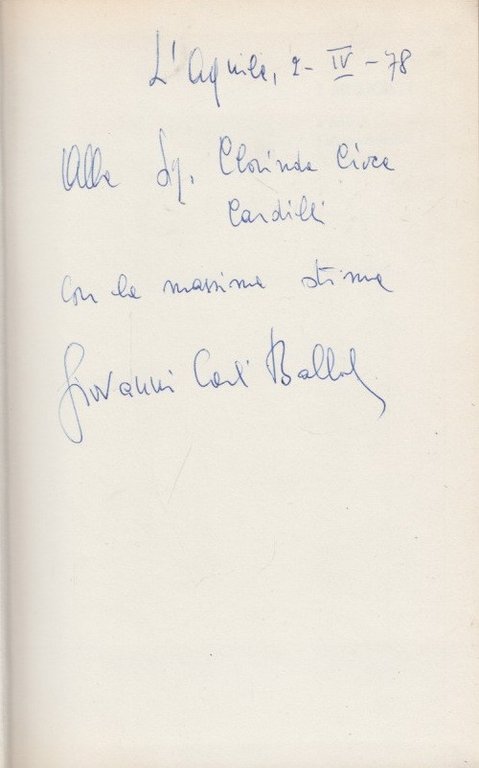 L'Aquila, 2-IV-78
Alla Sg. Clorinda Circe
Cardilli
con la massima stima
Giovanni Carli Ballola